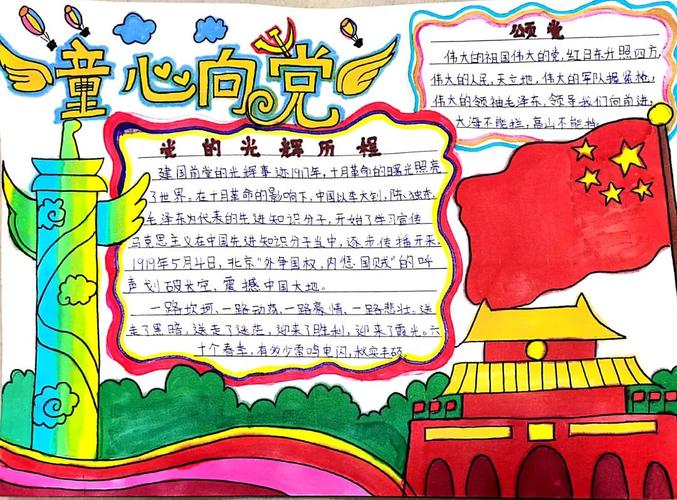 童心向党
颂党
伟大的祖国伟大的党,红日东升照四方,
伟大的人民,天立地,伟大的军队握紧枪,
伟大的领袖毛泽东,领导我们向前进,
大海不能拦,高山不能挡。
党的光辉历程
建国前党的光辉事迹1917年,十月革命的曙光照亮
了世界。在十月革命的影响下,中国以李大钊,陈独秀,
毛泽东为代表的先进知识分子,开始了学习宣传
马克思主义在中国先进知识分子当中,逐步传播开来,
1919年5月4日,北京“外争国权,内惩国贼”的呼
声划破长空、震撼中国大地。
一路坎坷、一路动荡、一路豪情、一路悲壮。送
走了黑暗,送走了迷茫,迎来了胜利,迎来了霞光。六
十个春,有为少雷鸣电闪,秋实丰硕